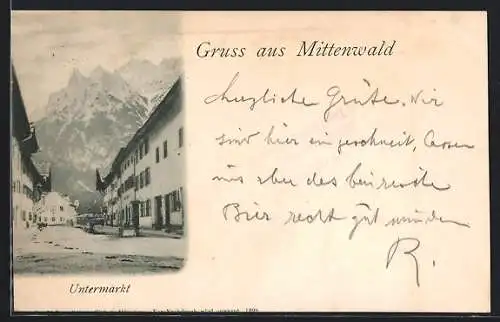 Gruss aus Mittenwald
Herzliche Grüße. Wir
sind hier eingeschneit, lassen
uns aber das bairische
Bier recht gut munden
R.
Untermarkt